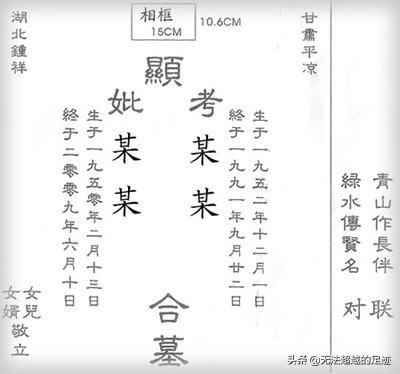 相框
15CM
10.6CM
青山作長伴
綠水傳賢名
对联
甘肅平凉
顯
考某某
生于一九五二年十二月一日
終于一九九一年九月廿二日
妣某某
生于一九五零年二月十三日
終于二零零九年六月十日
合墓
湖北鍾祥
女兒
女婿
敬立
头条 @无法超越的足迹